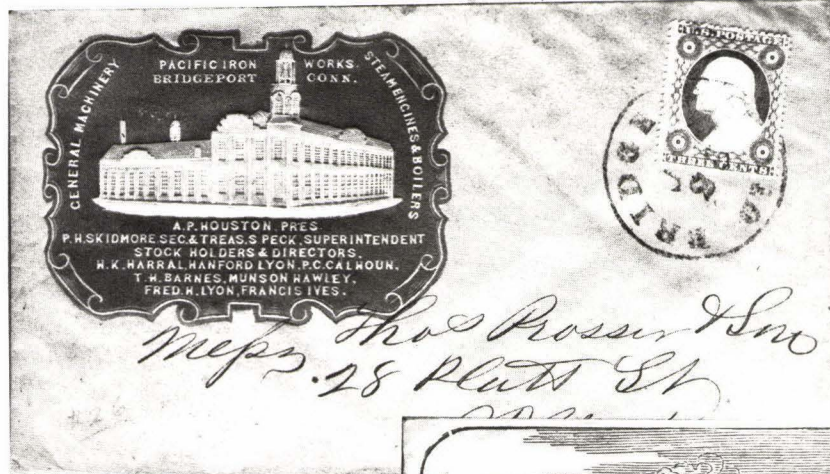 PACIFIC IRON WORKS.
BRIDGEPORT CONN.
GENERAL MACHINERY
STEAM ENGINES & BOILERS
A.P. HOUSTON. PRES
P.H. SKIDMORE. SEC. & TREAS. S PECK. SUPERINTENDENT
STOCK HOLDERS & DIRECTORS.
H.K. HARRAL, HANFORD LYON, P.C. CALHOUN.
T.H. BARNES, MUNSON HAWLEY,
FRED. H. LYON, FRANCIS IVES.
U.S. POSTAGE
THREE CENTS
BRIDGE
Messrs Thos Prosser & Son
28 Platt St